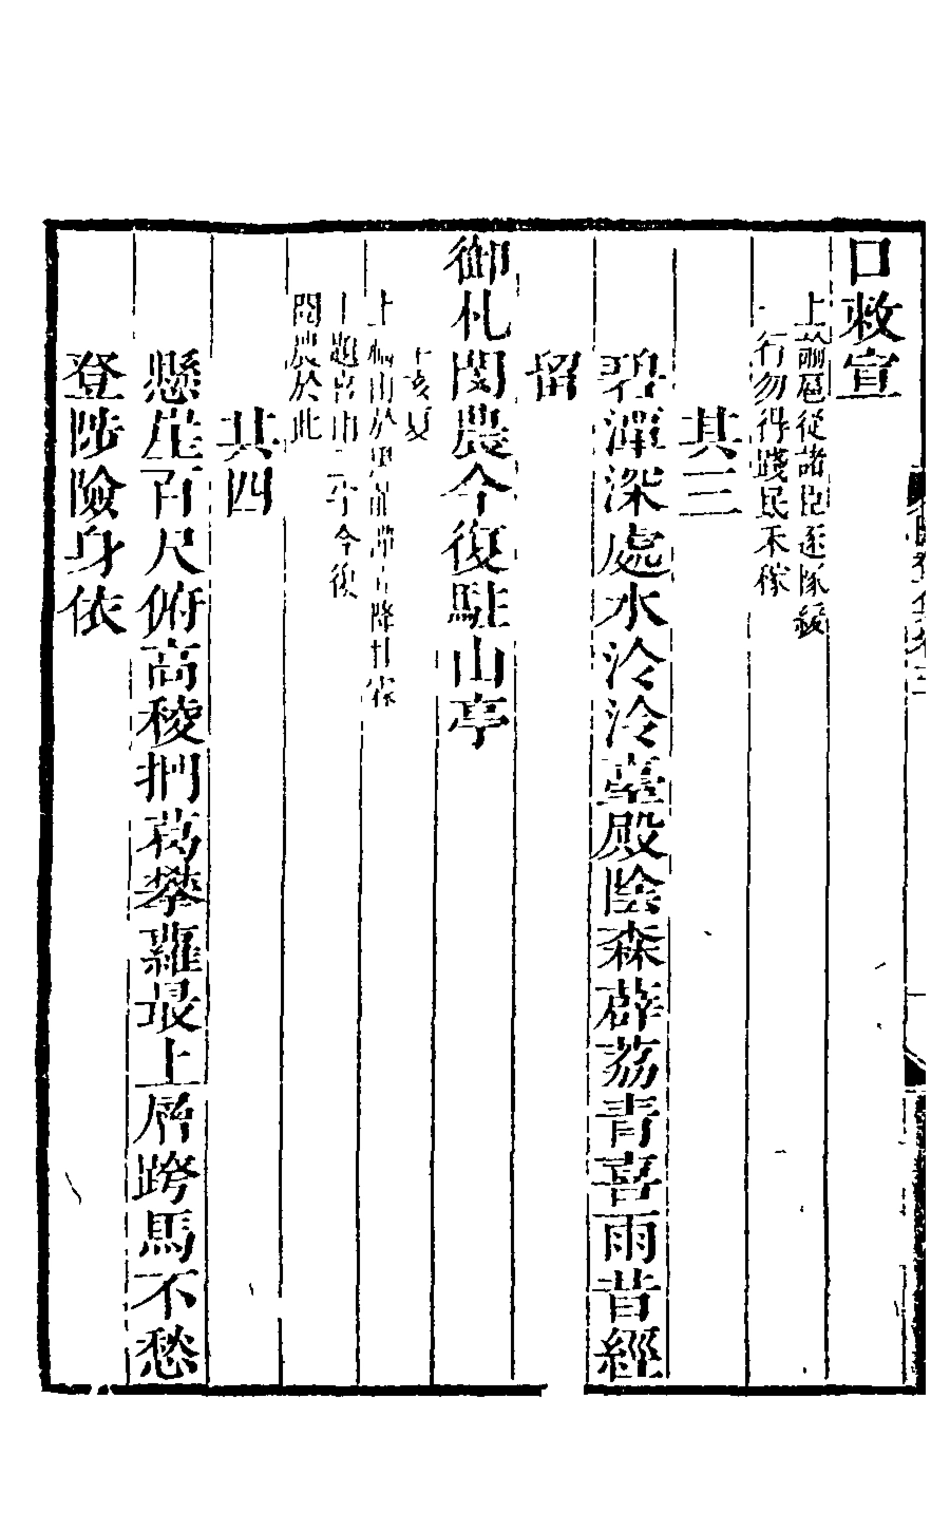 口敕宣
上論扈從諸臣逐隊緩
行勿得踐民禾稼
其三
碧潭深處水泠泠臺殿陰森薜荔青喜雨昔經
留
御札閔農今復駐山亭
亥夏
上禱雨於黑龍潭
降甘霖
上題喜雨二字今復
閔農於此
其四
懸崖百尺俯高稜捫葛攀蘿最上層跨馬不愁
登陟險身依